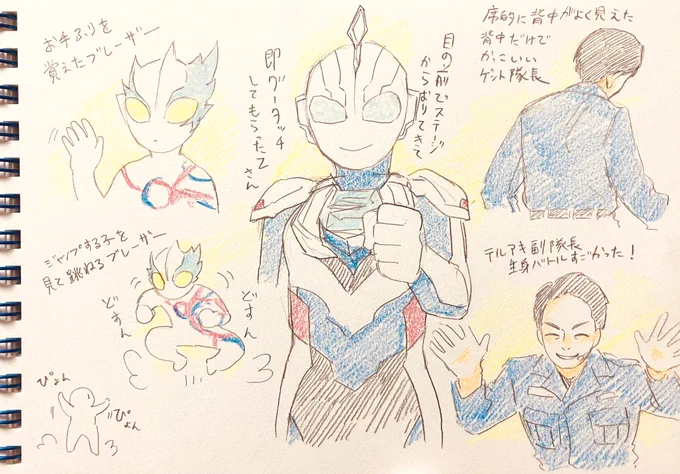 お手ふりを
覚えたブレーザー
ジャンプする子を
見て跳ねるブレーザー
どすん
どすん
ぴょん
ぴょん
目の前でステージ
からおりてきて
即グータッチ
してもらったZさん
席的に背中がよく見えた
背中だけで
かっこいい
ゲント隊長
テルアキ副隊長
生身バトルすごかった!